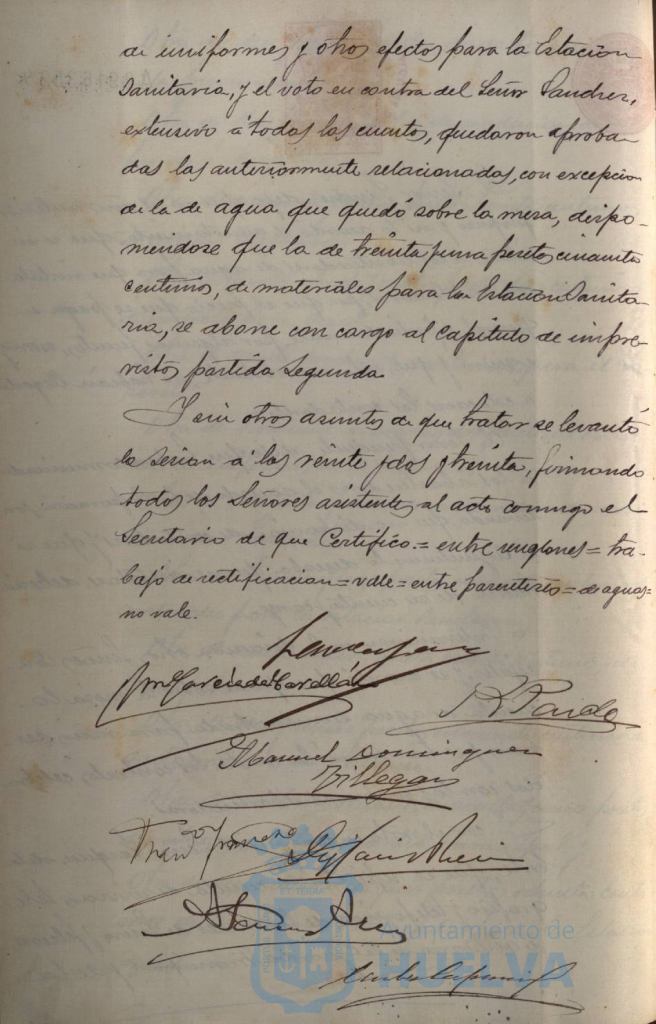 de uniformes y otros efectos para la Estación
Sanitaria, y el voto en contra del Señor Sanchez,
extensivo á todas las cuentas, quedaron aproba-
das las anteriormente relacionadas, con excepcion
de la de agua que quedó sobre la mesa, dispo-
niendose que la de treinta y una pesetas cincuenta
centimos, de materiales para la Estación Sanita-
ria, se abone con cargo al Capitulo de impre-
vistos partida Segunda.
Y sin otros asuntos de que tratar se levantó
la Sesion á las veinte y dos y treinta, firmando
todos los Señores asistentes al acto conmigo el
Secretario de que Certifico.= entre renglones = tra-
bajo de rectificacion = vale = entre parentesis = de aguas =
no vale.
Garcia de
R Pardo
Manuel Dominguez
Villegas
Ayuntamiento de
HUELVA